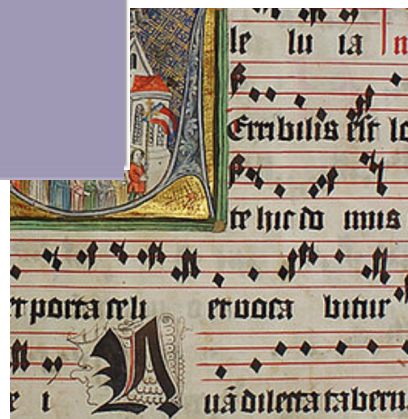 le lu ia
Erribilis est lo
te hic do mus
et porta celi et voca bitur
e i
Quā dilecta tabern